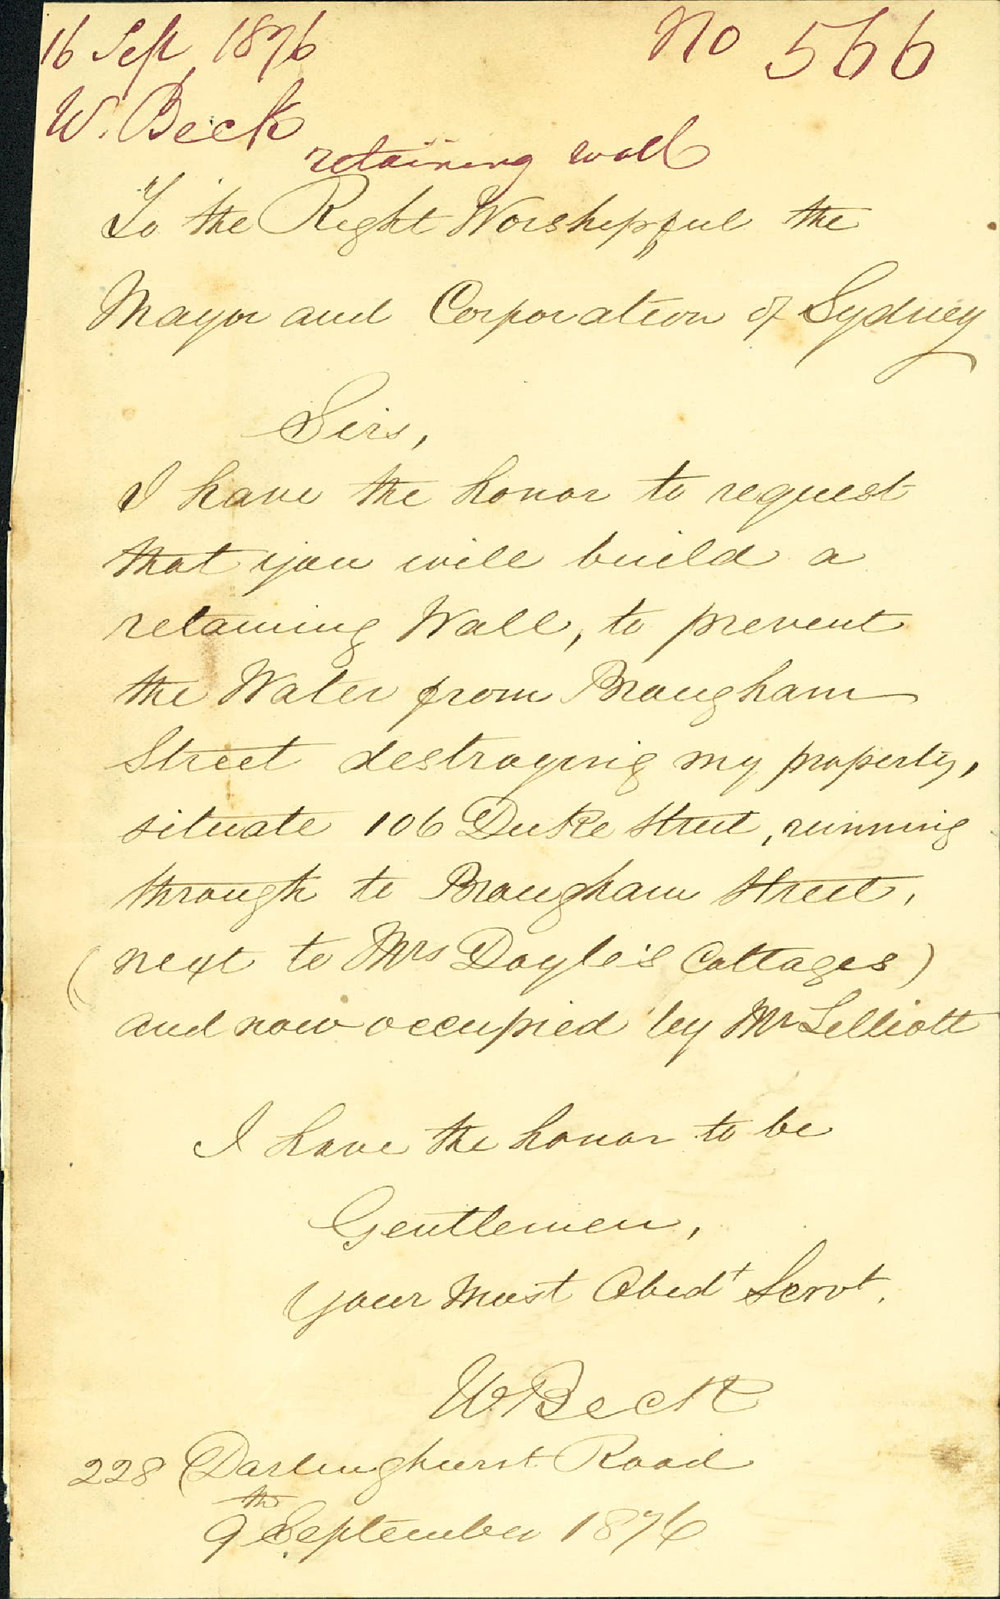 16 Sept 1876
No 566
W. Beck
retaining wall
To the Right Worshipful the
Mayor and Corporation of Sydney
Sirs,
I have the honor to request
that you will build a
retaining Wall, to prevent
the Water from Brougham
Street destroying my property,
situate 106 Duke Street, running
through to Brougham Street,
(next to Mrs Doyle's Cottages)
and now occupied by Mr Lelliott
I have the honor to be
Gentlemen,
Your Most Obedt Servt.
W Beck
228 Darlinghurst Road
9th September 1876